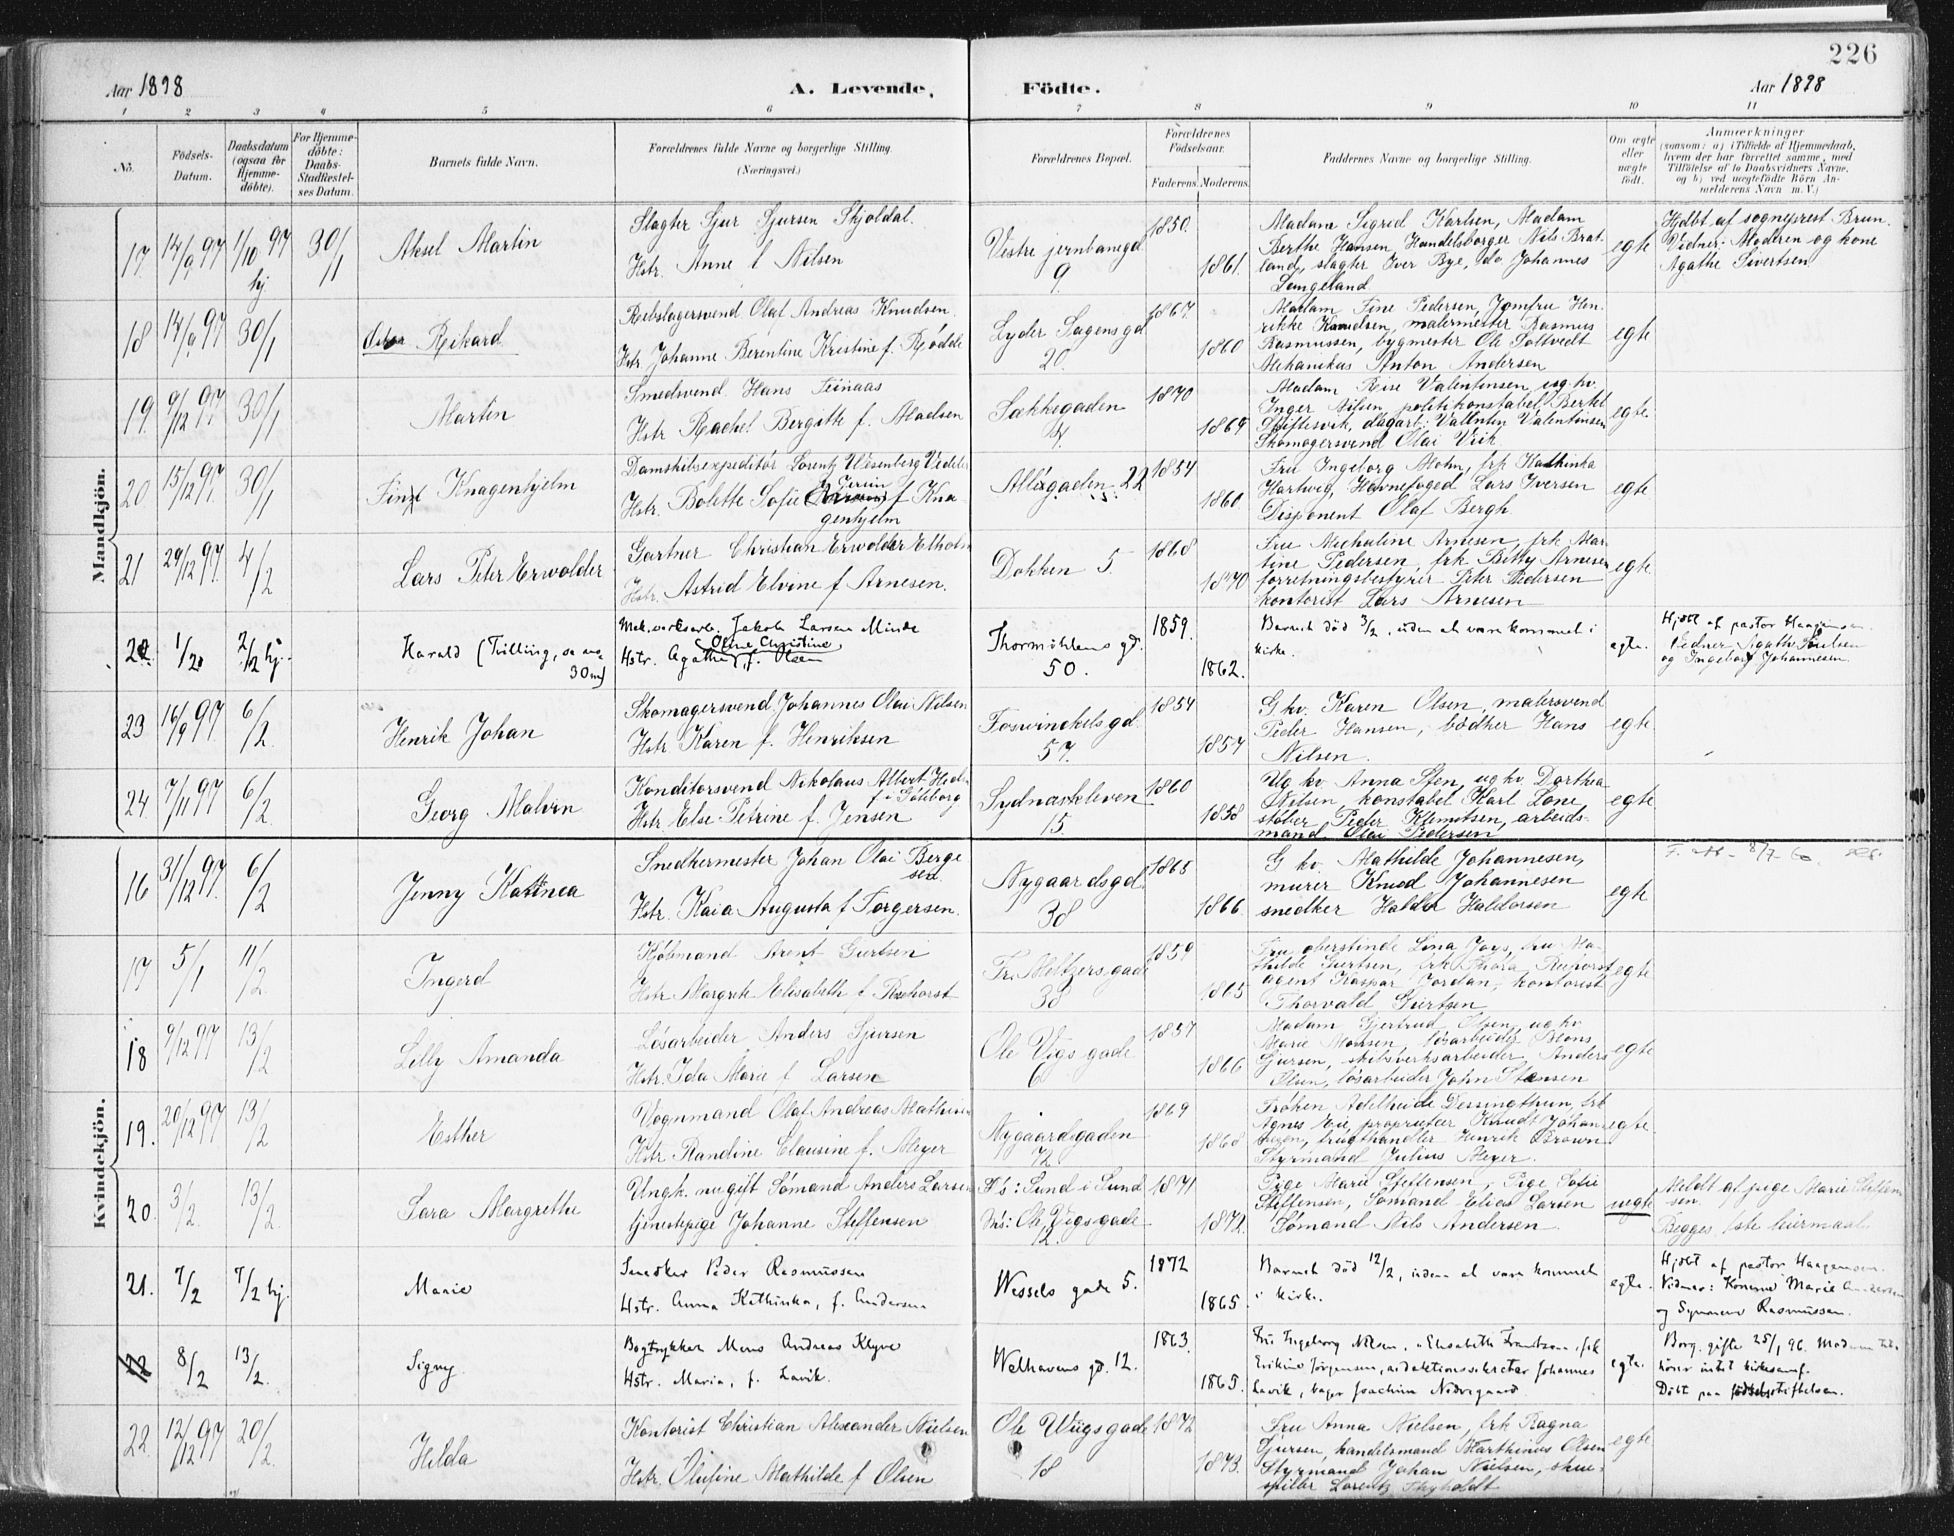 226
Aar 1898
A. Levende,
Födte.
Aar 1898
1 2 3 4 5 6 7 8 9 10 11
No.
Födsels-
Datum.
Daabsdatum
(ogsaa for
Hjemme-
döbte).
For Hjemme-
döbte:
Daabs-
Stadfæstel-
ses Datum.
Barnets fulde Navn.
Forældrenes fulde Navne og borgerlige Stilling.
(Næringsvei.)
Forældrenes Bopæl.
Forældrenes
Födselsaar.
Faderens. Moderens.
Faddernes Navne og borgerlige Stilling.
Om ægte
eller
uægte
födt.
Anmærkninger
(saasom: a) i Tilfælde af Hjemmedaab,
hvem der har forrettet samme, med
Tilföielse af to Daabsvidners Navne,
og b) ved uægtefödte Börn An-
melderens Navn m. V.)
Mandkjön.
17 14/9 97 1/10 97 hj 30/1
Aksel Martin
Slagter Sjur Sjursen Skjoldal
Hstr. Anne f Nilsen
Vestre jernbanegd
9
1850.
1861.
Madam Sigrid Karlsen, Madam
Berthe Hansen, Handelsborger Nils Brat-
land, slagter Iver Bye, do Johannes
Langeland
egte
Hjdbt af sogneprest Brun.
Vidner: Moderen og kone
Agathe Sivertsen
18 14/9 97 30/1
Rikard
Rebslagersvend Olaf Andreas Knudsen
Hstr. Johanne Berentine Kristine f. Rødde
Lyder Sagens gd
20.
1867.
1860
Madam Fine Pedersen, Jomfru Hen-
rikke Knudsen, malermester Rasmus
Rasmussen, bygmester Ole Toftvedt
Mekanikus Anton Andersen
egte
19 9/12 97 30/1
Martin
Smedsvend Hans
Hstr Rachel Bergitte f. Madsen
Sækkegaden
4.
1870
1869
Madam Valentinsen, ug. kv.
Inger Nilsen, politikonstabel Bertel
dagarb: Valentin Valentinsen
Skomagersvend Olai Vik
egte.
20 15/12 97. 30/1
Knagenhjelm
Damskibsexpeditör Lorentz Wesenberg
Hstr. Bolette Sofie f Kna
genhjelm
Allégaden 22
1854
1860
Fru Ingeborg Mohn, frk Kathinka
Hartvig, Havnefoged Lars Iversen
Disponent Olaf Bergh.
egte
21 29/12 97. 4/2
Lars Peter Erwolder
Gartner Christian Erwolder
Hstr. Astrid Elvine f Arnesen.
Dokken 5
1868
1870
Fru Michaline Arnesen, frk Mar-
tine Pedersen, frk Betty Arnesen
forretningsbestyrer Peter Pedersen
kontorist Lars Arnesen
egte.
22. 1/2 2/2 hj.
Harald (Tvilling,
Mek.verksarb. Jakob Larsen Minde
Oline Christine
Hstr. Agathe f. Olsen
Thormøhlens gd.
50.
1859.
1862.
Barnet död 3/2, uden at være kommet i
kirke.
egte.
Hjdbt af pastor Haagensen.
Vidner Agathe
og Ingeborg Johannesen.
23 16/9 97 6/2
Henrik Johan
Skomagersvend Johannes Olai Nilsen
Hstr Karen f. Henriksen
Fosswinckels gd.
57.
1854
1857
G kv. Karen Olsen, malersvend
Peder Hansen, bödker Hans
Nilsen.
egte
24. 7/11 97 6/2.
Georg Malvin
Konditorsvend Nikolaus Albert
f i Göteborg
Hstr Else Petrine f. Jensen
Sydneskleven
15.
1860
1858
Ug kv Anna Sten, ug kv. Dorthea
Nilsen, konstabel Karl Lone,
støber Peder Klemetsen, arbeids-
mand Olai Pedersen
egte
Kvindekjön.
16 31/12 97. 6/2
Jenny Katinca
Snedkermester Johan Olai Berge
sen
Hstr. Kaia Augusta f Torgersen.
Nygaardsgd.
38
1865
1866.
G kv. Mathilde Johannesen,
murer Knud Johannesen
snedker Haldor Haldorsen
egte
17 5/1 11/2
Ingerd
Kjøbmand Arent Giertsen
Hstr Margrete Elisabeth f.
Fr. Meltzers gade
38
1859
1865
Fru oberstinde Lina Joys, fru Ma-
thilde Giertsen, frk Thora
agent Kaspar Jordan, kontorist
Thorvald Giertsen
egte
18 9/12 97 13/2
Lilly Amanda
Løsarbeider Anders Sjursen
Hstr. Ida Marie f Larsen
Ole Vigs gade
6
1857
1866
Madam Gjertrud Olsen, ug kv.
Marie Monsen, løsarbeider Mons
Sjursen, skibsverksarbeider Anders
Olsen, løsarbeider John Stensen
egte
19. 20/12 97 13/2
Esther
Vognmand Olaf Andreas
Hstr Randine Clausine f. Meyer
Nygaardsgaden
72
1869
1868
Frøken Adelheide frk
Agnes proprietær Knudt Johan-
nesen, brugthandler Henrik Brown
Styrmand Julius Meyer.
egte
20. 3/2. 13/2.
Sara Margrethe
Ungk. nugift Sømand Anders Larsen
tjenestepige Johanne Steffensen
F's: Sund i Sund
M's: Ole Vigs gade
12.
1871
1872.
Pige Marie Steffensen, Pige Sofie
Steffensen, Sømand Elias Larsen
Sømand Nils Andersen
uegte
Meldt af pige Marie Steffen-
sen.
Begges 1ste leiermaal.
21. 7/2 7/2 hj.
Marie
Snedker Peder Rasmussen
Hstr. Anna Kathinka, f. Andersen
Wessels gade 5.
1872
1865.
Barnet död 12/2, uden at være kommet
i kirke.
egte.
Hjdbt af pastor Haagensen.
Vidner: Konerne Marie Andersen
og Rasmussen.
22 8/2 13/2.
Signy
Bogtrykker Mons Andreas Klyve
Hstr. Maria, f. Lavik.
Welhavens gd. 12.
1863.
1865.
Fru Ingeborg Nilsen, Elisabeth Frantzen, frk
Jörgensen, redaktionssekretær Johannes
Lavik, bager Joachim Nedregaard
egte.
Borg. gifte 25/1 96.
hörer intet kirkesamf.
Döbt paa fødselsstiftelsen.
22. 12/12 97 20/2.
Hilda
Kontorist Christian Alexander Nielsen
Hstr. Olufine Mathilde f Olsen
Ole Wiigs gade
18
1872
1873.
Fru Anna Nielsen, frk Ragna
Sjursen, handelsmand Marthinus Olsen
Styrmand Johan Nielsen, skue-
spiller Lorentz Thyholdt
egte